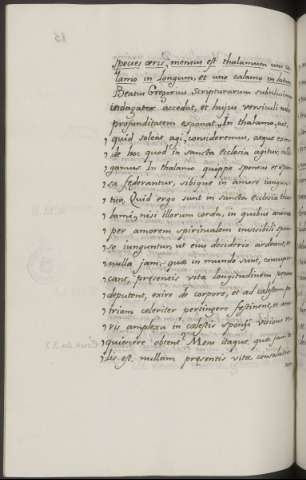 species æris, mensus est thalamum uno ca
lamo in longum, et uno calamo in latum
Beatus Gregorius Scripturarum sublimium
indagator accedat, et huius versiculi
profunditatem exponat. In thalamo,
quid soleat agi, consideremus, atque ex
de hoc quod in sancta Ecclesia agitur, colli
gamus. In thalamo quippe sponsus et spon
sa federantur, sibique in amore iungun
tur. Quid ergo sunt in sancta Ecclesia tha
lami, nisi illorum corda, in quibus anima
per amorem spiritualem invisibili spon
so iunguntur, ut eius desiderio ardeant, et
nulla jam, quæ in mundo sunt, concupis
cant, presentis vitæ longitudinem pœnam
deputent, exire de corpore, et ad cælestem pa
triam celeriter pertingere festinent, et amo
ris amplexu in cælestis sponsi visione re
quiescere obtent? Mens itaque, quæ jam ta
lis est, nullam presentis vitæ consolatio